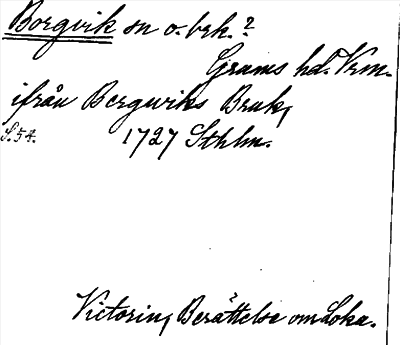 Borgvik sn o. brk.?
Grums hd. Vrm.
ifrån Bergwiks Bruk,
S. 54. 1727 Sthlm.
Victorin, Berättelse om Loka.